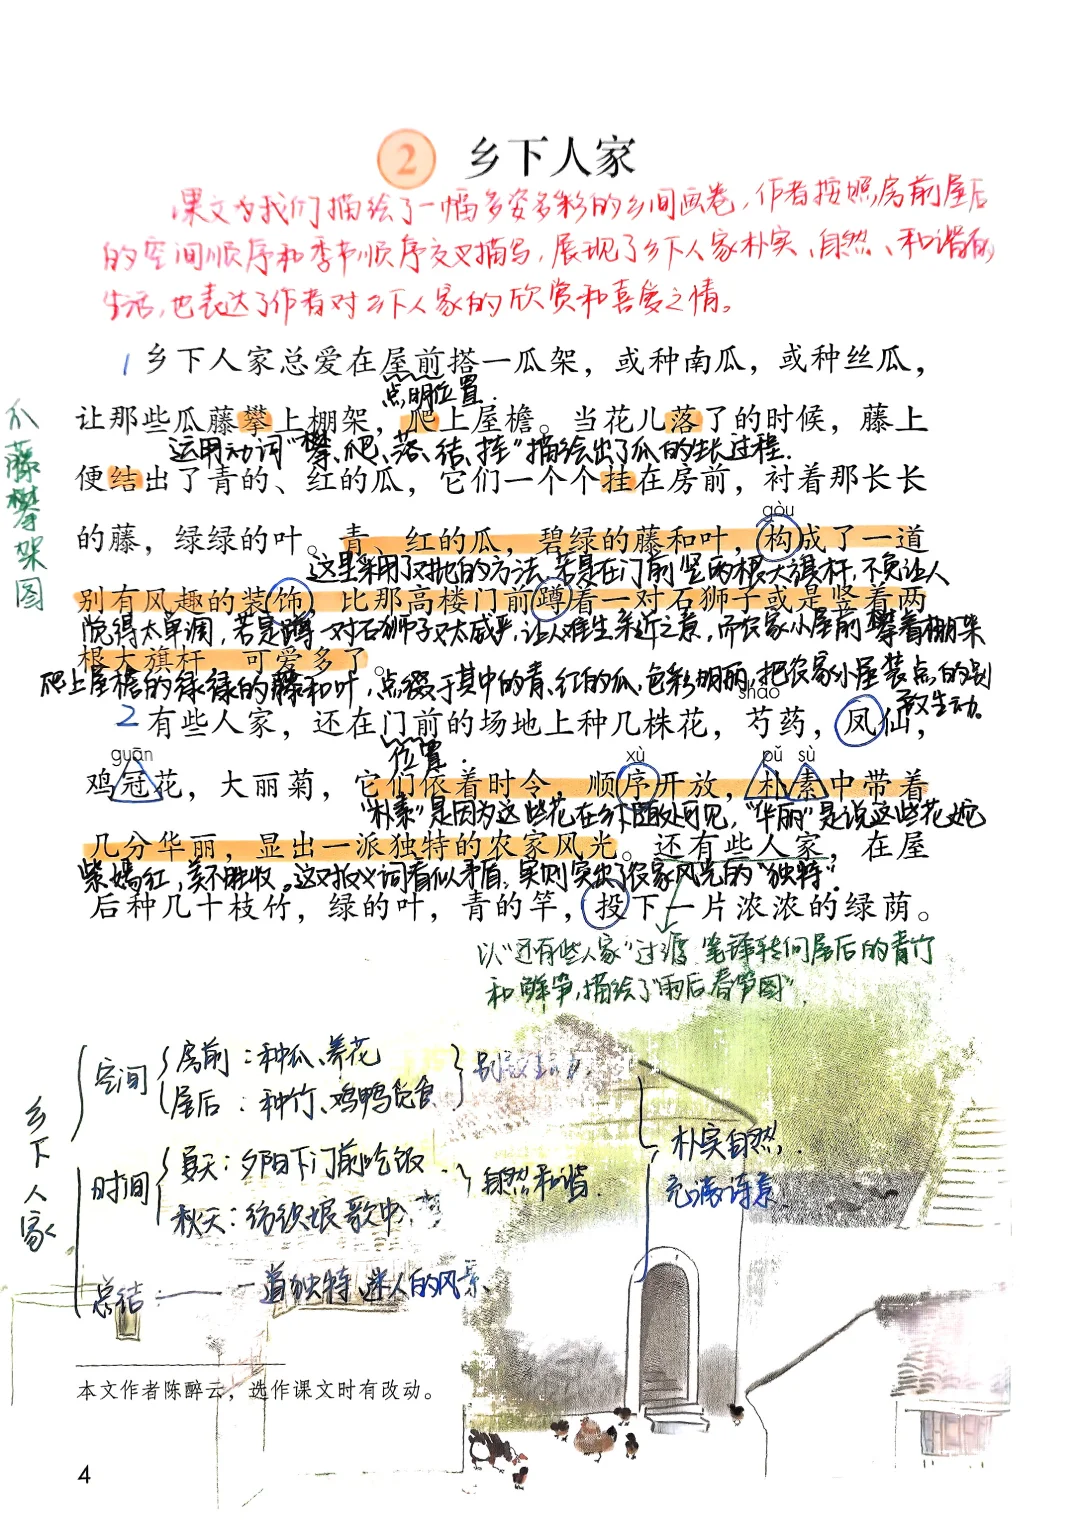 2 乡下人家
课文为我们描绘了一幅多姿多彩的乡间画卷，作者按照房前屋后
的空间顺序和季节顺序交叉描写，展现了乡下人家朴实、自然、和谐的
生活，也表达了作者对乡下人家的欣赏和喜爱之情。
1 乡下人家总爱在屋前搭一瓜架，或种南瓜，或种丝瓜，
点明位置.
让那些瓜藤攀上棚架，爬上屋檐。当花儿落了的时候，藤上
运用动词“攀、爬、落、结、挂”描绘出了瓜的生长过程.
便结出了青的、红的瓜，它们一个个挂在房前，衬着那长长
gòu
的藤，绿绿的叶。青、红的瓜，碧绿的藤和叶，构成了一道
这里采用了对比的方法、若是在门前竖两根大旗杆，不免让人
别有风趣的装饰，比那高楼门前蹲着一对石狮子或是竖着两
觉得太单调，若是蹲一对石狮子又太威严，让人难生亲近之意，而农家小屋前攀着棚架
根大旗杆，可爱多了。
爬上屋檐的绿绿的藤和叶，点缀于其中的青、红的瓜，色彩明丽，把农家小屋装点的别
致生动。
瓜藤攀架图
sháo
2 有些人家，还在门前的场地上种几株花，芍药，凤仙，
位置.
guān xù pǔ sù
鸡冠花，大丽菊，它们依着时令，顺序开放，朴素中带着
“朴素”是因为这些花在乡下随处可见，“华丽”是说这些花姹
几分华丽，显出一派独特的农家风光。还有些人家，在屋
紫嫣红，美不胜收。这对反义词看似矛盾，实则突出了农家风光的“独特”.
后种几十枝竹，绿的叶，青的竿，投下一片浓浓的绿荫。
以“还有些人家”过渡，笔锋转向屋后的青竹
和鲜笋，描绘了“雨后春笋图”.
乡下人家
空间
房前：种瓜、养花
屋后：种竹、鸡鸭觅食
别致生动.
时间
夏天：夕阳下门前吃饭
秋天：纺织娘歌中
自然和谐.
总结：—— 一道独特、迷人的风景、
朴实自然，
充满诗意.
本文作者陈醉云，选作课文时有改动。
4